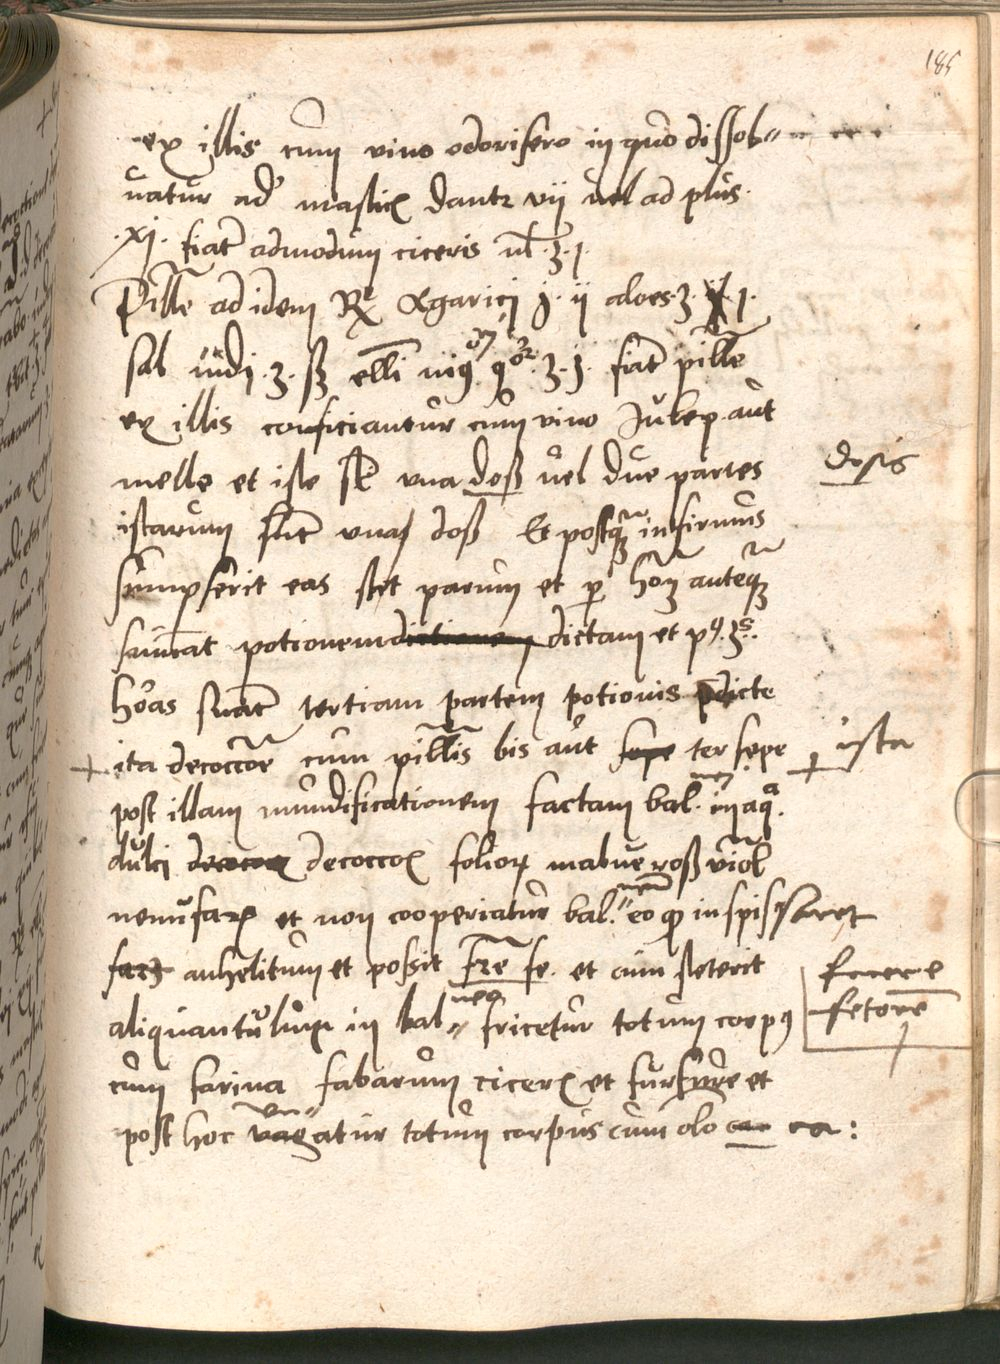 185
ex illis cum vino odorifero in quo dissol〃
vatur ad' masticẽ dantr vii uel ad plus.
.xj. fiat̃ admodum ciceris ul̃.ʒ.j.
Pill̃e ad idem Rx Agarici ʒ. ij aloes.ʒ. j.
sal indi .ʒ. ß ell̃i nig. ʒ.j. fiat̃ pill̃e
ex illis conficiantur cum vino Julep. aut
melle et iste st̃ vna doß uel due partes
dosis
istarum sũt vna doß Et postq̃ infirmus
sumpserit eas stet parum et p̱ hoã anteq̃
sumat potionem dictionem dictam et p9 .ʒs.
hõas sũat tertiam partem potionis p̃dicte
+ ita decoctõe cum pill̃is bis aut sepe ter sepe
+ ista
post illam mundificationem factam bal. in aq̃.
dulci decoctõ folioꝝ malue roß viol̃
nenufarꝝ et non cooperiatur bal.〃 eo ꝙ inspissaret
anhelitum et possit fr̃e fe. et cum steterit
facere
fetorẽ
aliquantulum in bal〃neo fricetur totum corp9
cum farina fabarum cicerꝝ et furfure et
post hoc ungatur totum corpus cum olo ca: